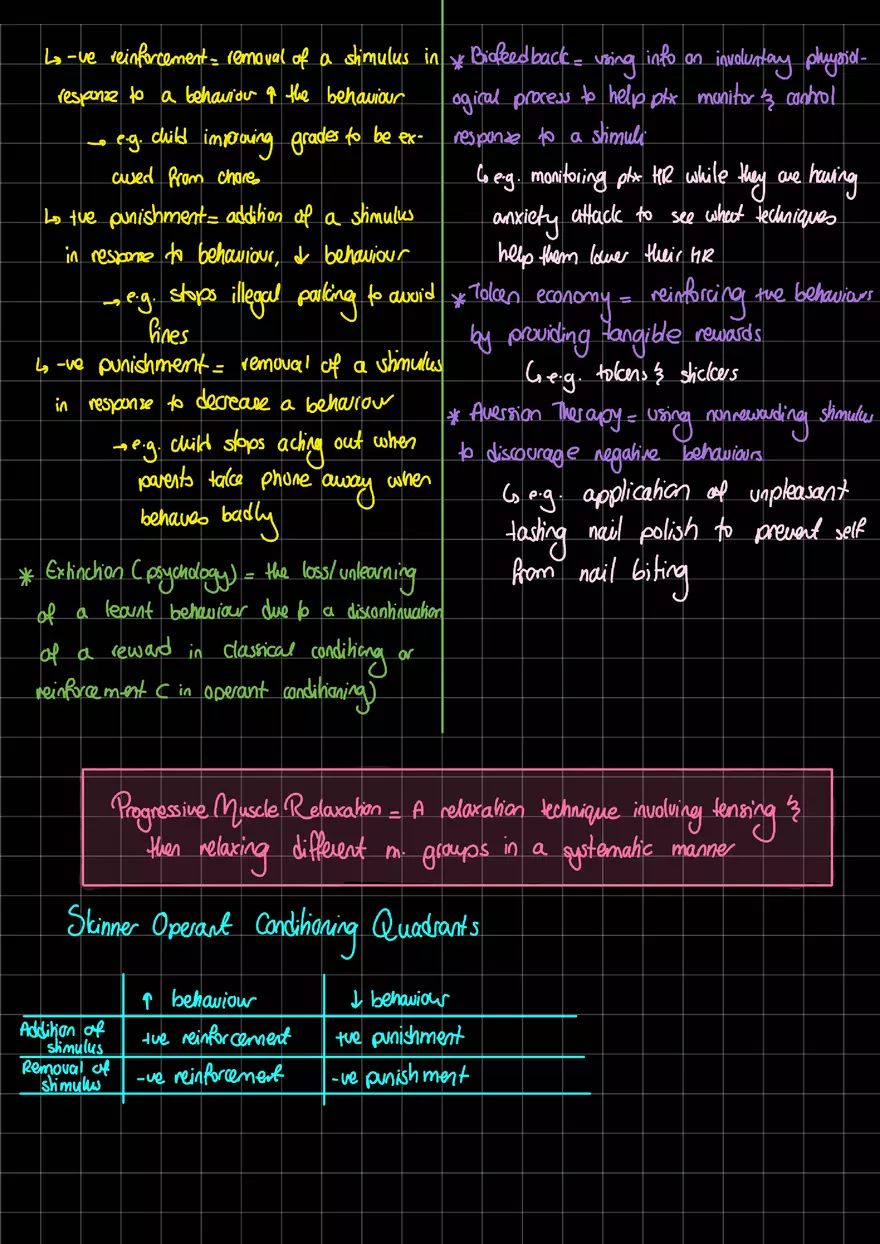 ↳ -ve reinforcement = removal of a stimulus in
response to a behaviour ↑ the behaviour
→ e.g. child improving grades to be ex-
cused from chores
↳ +ve punishment = addition of a stimulus
in response to behaviour, ↓ behaviour
→ e.g. stops illegal parking to avoid
fines
↳ -ve punishment = removal of a stimulus
in response to decrease a behaviour
→ e.g. child stops acting out when
parents take phone away when
behaves badly
* Extinction (psychology) = the loss/unlearning
of a learnt behaviour due to a discontinuation
of a reward in classical conditiong or
reinforcement ( in operant conditioning)
* Biofeedback = using info on involuntary physiol-
ogical process to help ptx monitor & control
response to a stimuli
↳ e.g. monitoring ptx HR while they are having
anxiety attack to see what techniques
help them lower their HR
* Token economy = reinforcing +ve behaviours
by providing tangible rewards
↳ e.g. tokens & stickers
* Aversion Therapy = using nonrewarding stimulus
to discourage negative behaviours
↳ e.g. application of unpleasant
tasting nail polish to prevent self
from nail biting
Progressive Muscle Relaxation = A relaxation technique involving tensing &
then relaxing different m. groups in a systematic manner
Skinner Operant Conditioning Quadrants
↑ behaviour ↓ behaviour
Addition of
stimulus +ve reinforcement +ve punishment
Removal of
stimulus -ve reinforcement -ve punishment